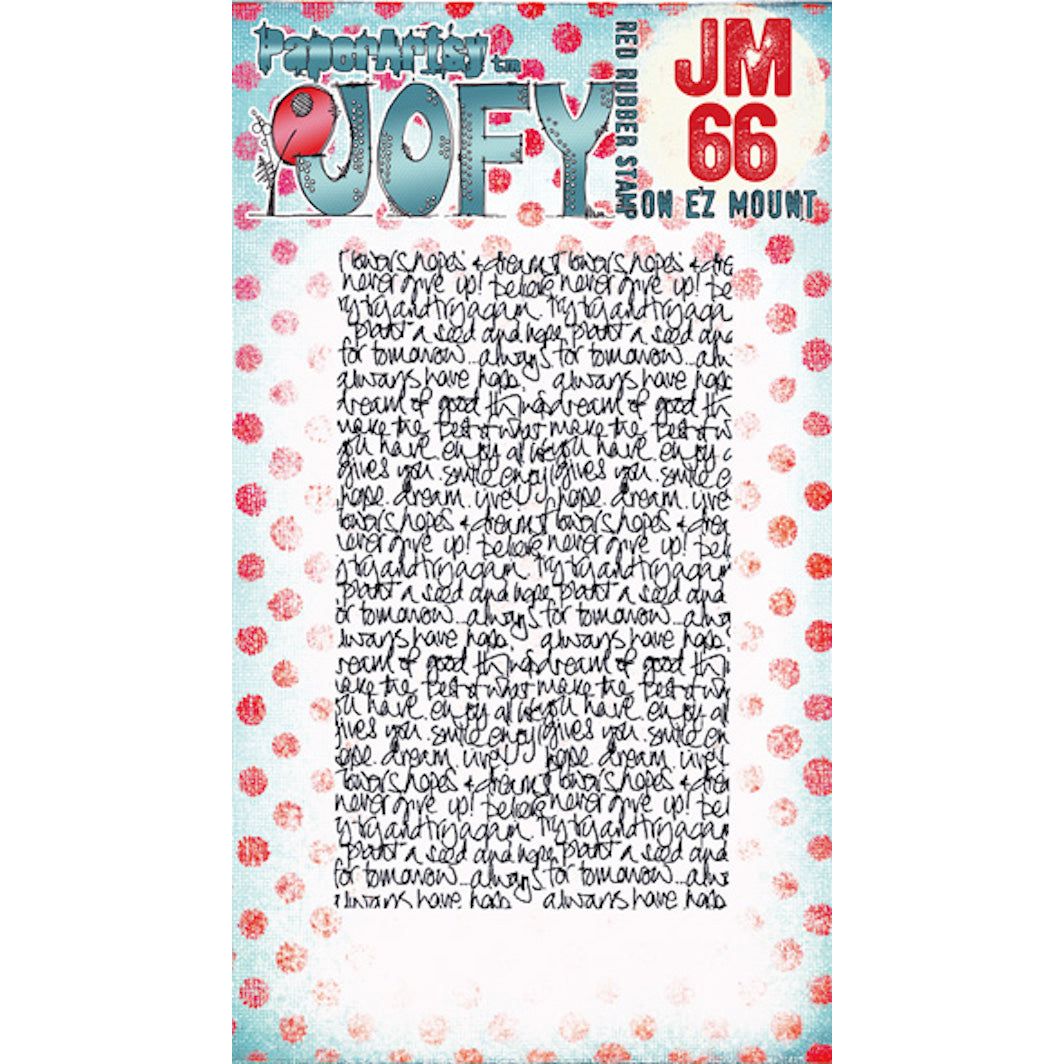 PaperArtsy tm
JOFY
RED RUBBER STAMP
JM
66
ON EZ MOUNT
flowers, hopes & dreams flowers, hopes & dre
never give up! believe never give up! be
ry try and try again. Try try and try aga
plant a seed and hope, plant a seed and
for tomorrow...always for tomorrow...alw
always have hope. always have hope
dream of good things dream of good th
make the best of what make the best of w
you have. enjoy all life you have. enjoy a
gives you. smile enjoy gives you. smile e
hope. dream. live! hope. dream. live
flowers, hopes & dreams flowers, hopes & drea
never give up! believe never give up! bel
y try and try again. Try try and try again
plant a seed and hope, plant a seed and
or tomorrow...always for tomorrow...alwa
always have hope. always have hope.
ream of good things dream of good thi
make the best of what make the best of wh
you have. enjoy all life you have. enjoy all
gives you. smile enjoy gives you. smile en
ope. dream. live! hope. dream. live!
flowers, hopes & dreams flowers, hopes & drea
never give up! believe never give up! bel
y try and try again. Try try and try again
plant a seed and hope, plant a seed and
for tomorrow...always for tomorrow...alwa
always have hope always have hope